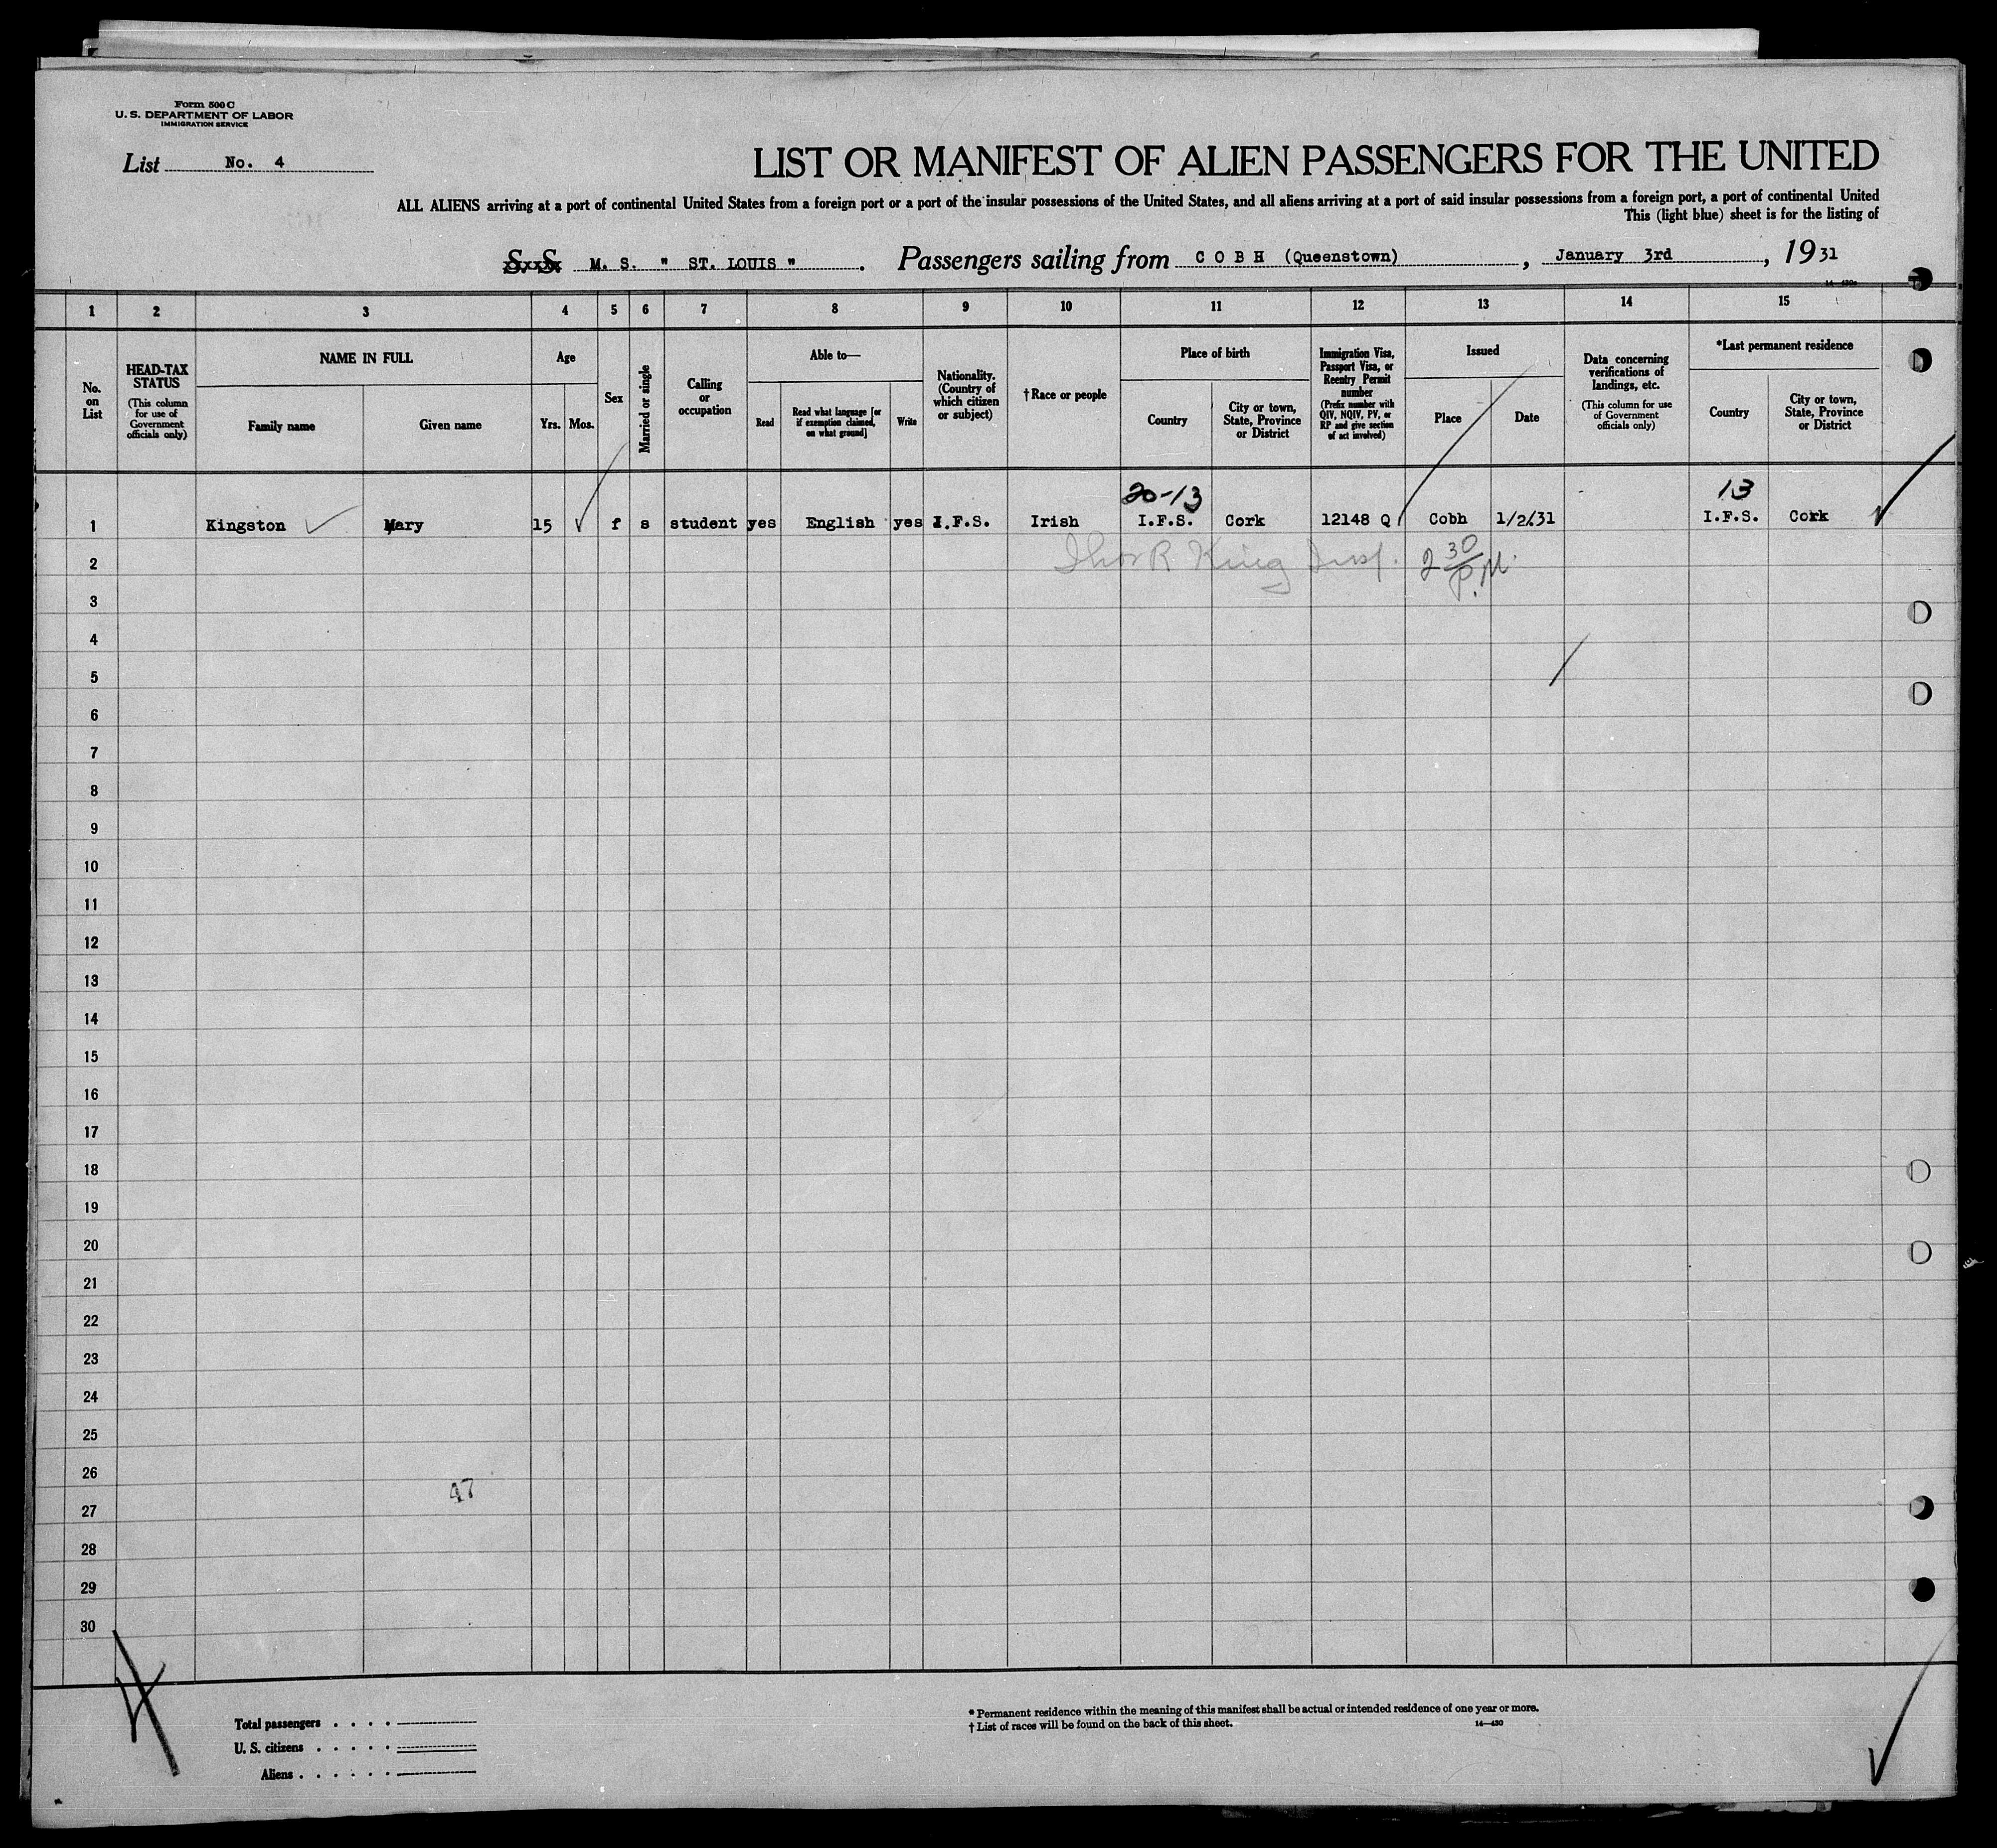 Form 500 C
U. S. DEPARTMENT OF LABOR
IMMIGRATION SERVICE
List No. 4
LIST OR MANIFEST OF ALIEN PASSENGERS FOR THE UNITED
ALL ALIENS arriving at a port of continental United States from a foreign port or a port of the insular possessions of the United States, and all aliens arriving at a port of said insular possessions from a foreign port, a port of continental United
This (light blue) sheet is for the listing of
S. S. M. S. " ST. LOUIS " . Passengers sailing from C O B H (Queenstown) , January 3rd , 19 31
1 2 3 4 5 6 7 8 9 10 11 12 13 14 15
No. on List
HEAD-TAX STATUS (This column for use of Government officials only)
NAME IN FULL
Family name
Given name
Age
Yrs. Mos.
Sex
Married or single
Calling or occupation
Able to—
Read
Read what language [or if exemption claimed, on what ground]
Write
Nationality. (Country of which citizen or subject)
† Race or people
Place of birth
Country
City or town, State, Province or District
Immigration Visa, Passport Visa, or Reentry Permit number (Prefix number with QIV, NQIV, PV, or RP and give section of act involved)
Issued
Place
Date
Data concerning verifications of landings, etc. (This column for use of Government officials only)
*Last permanent residence
Country
City or town, State, Province or District
20-13 13
1 Kingston Mary 15 f s student yes English yes I.F.S. Irish I.F.S. Cork 12148 Q Cobh 1/2/31 I.F.S. Cork
2 King Insp. 2 30 P.M.
3
4
5
6
7
8
9
10
11
12
13
14
15
16
17
18
19
20
21
22
23
24
25
26
47
27
28
29
30
Total passengers . . . .
U. S. citizens . . . . .
Aliens . . . . . .
* Permanent residence within the meaning of this manifest shall be actual or intended residence of one year or more.
† List of races will be found on the back of this sheet. 14—430